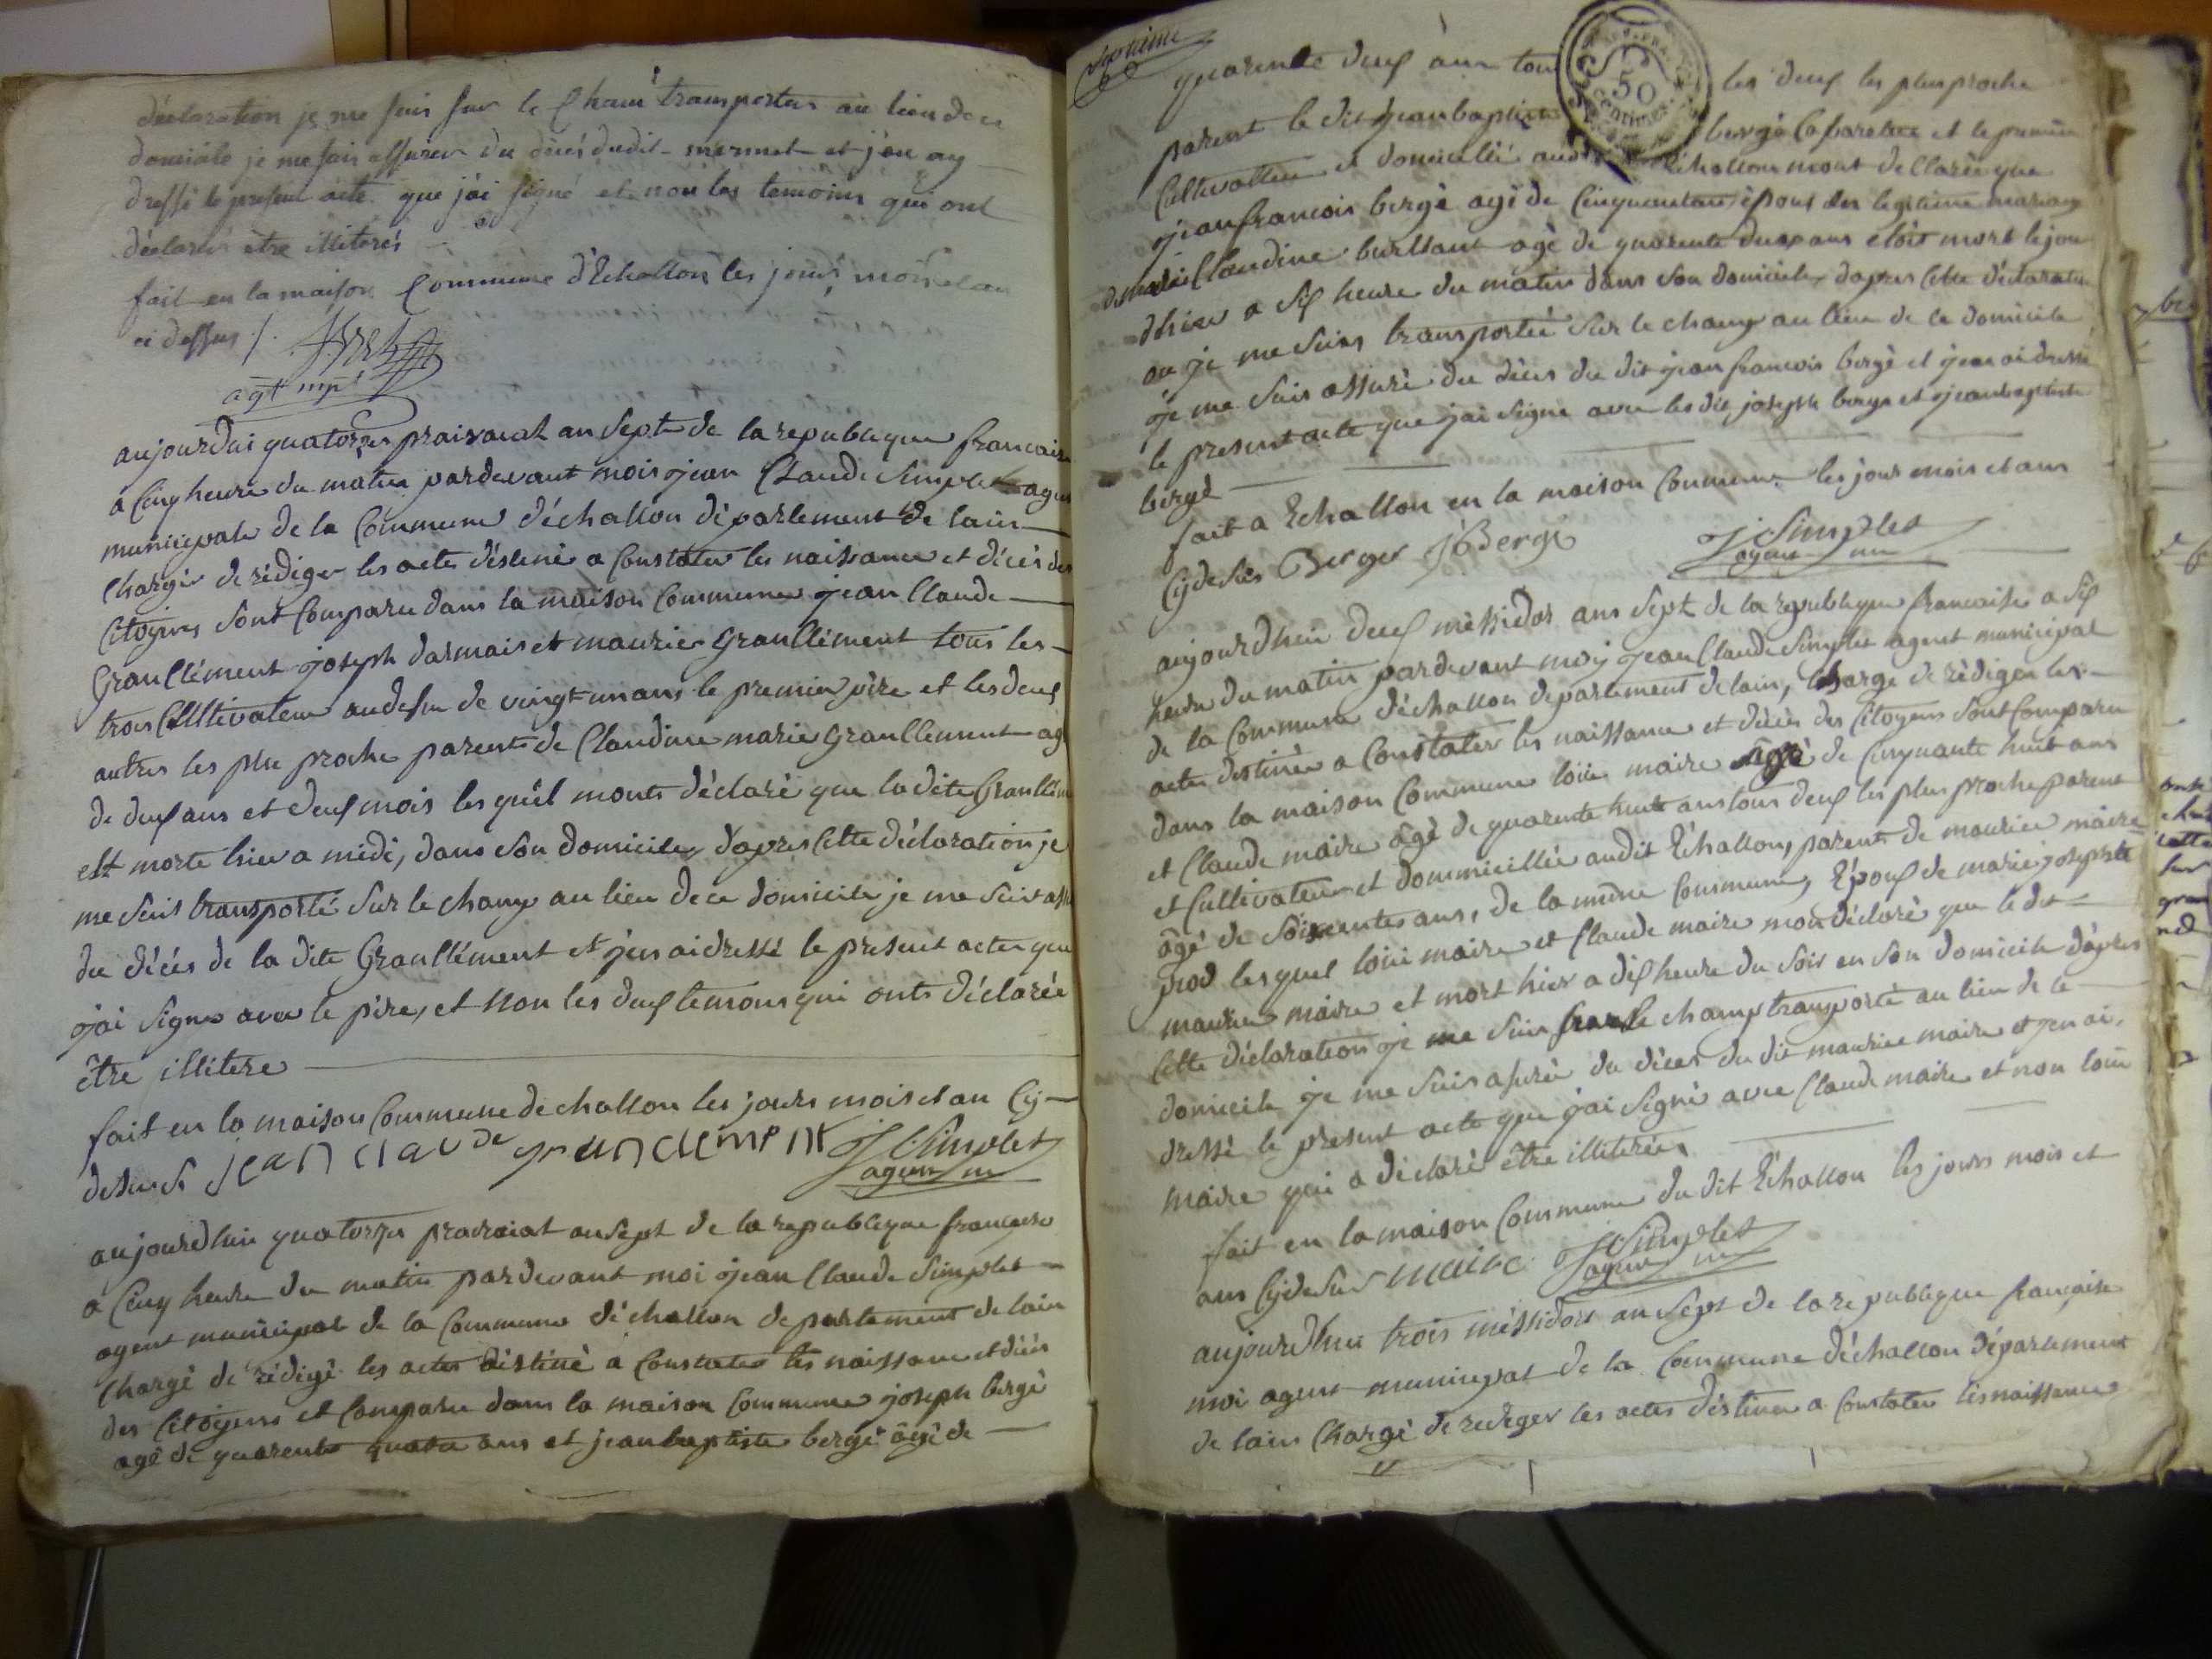 déclaration je me suis sur le Cham transporter au lieu de ce
domicile je me suis assurer du décés dudit mermet et j'en ay
dressé le present acte que j'ai signé et non les temoins qui ont
déclarés etre illiterés
fait en la maison Commune d'Echallon les jours mois et an
ci dessus /.
agt mpl
aujourdui quatorze prairaial an Sept de la republique francaise
a Cinq heure du matin pardevant mois jean Claude Simplet agent
municipale de la Commune déchallon département de lain
Chargé de rédiger les actes déstiné a Constater les naissance et décés des
Citoyens sont Comparu dans la maison Commune jean Claude
Granclément joseph darmais et maurice Granclément tous les
trois Cultivateur audesu de vingt un ans le premier pére et les deuf
autres les plu proche parent de Claudine marie Granclement agé
de deuf ans et deuf mois les quél monts déclaré que la dite Granclém
est morte hier a midi, dans son domicile, d'apres Cette déclaration je
me suis transporté sur le champ au lieu de ce domicile je me suis ass
du décés de la dite Granclément et j'en ai dressé le present acte que
j'ai signe avec le pére, et non les deuf temoins qui onts déclarée
être illitere
fait en la maison Commune dechallon les jours mois et an Cy
desus jean claude grandclement JC Simplet
agent m
aujourdhui quatorze prairaial an sept de la republique francaise
a Cinq heure du matin pardevant moi jean Claude Simplet
agent municipal de la Commune déchallon departement de lain
Chargé de rédigé les actes déstiné a Constater les naissance et décés
des Citoyens et Comparu dans la maison Commune joseph bergé
agé de quarente quatre ans et jean baptiste bergé âgé de
quarente deuf ans tous les deuf les plus proche
50 centimes
parent le dit jean baptiste bergé et le premier
Cultivatteur et domicilié audit Echallon mont declarée que
jean francois bergé agé de Cinquante ans époux der legitime mariage
Claudine burllant agé de quarente deux ans étoit mort le jour
dhier a sif heure du matin dans son domicile, dapres Cette déclaration
ou je me suis transportée sur le champ au lieu de ce domicile
je me suis assuré du décés du dit jean francois bergé et jean ai dressé
le present acte que jai signe avec les dit joseph bergé et jean baptiste
bergé
fait a Echallon en la maison Commune les jour mois et ans
Cydesus Berger JB Bergé JC Simplet
agent m
aujourdhui deuf méssidor ans sept de la republique francaise a sif
heure du matin pardevant moy jean Claude Simplet agent municipal
de la Commune déchallon departement de lain, Charge de rédiger les
actes déstinée a Constater les naissance et décés des Citoyens sont Comparu
dans la maison Commune loüi maire agé de Cinquante huit ans
et Claude maire âgé de quarente huit ans tous deuf les plus proche parent
et Cultivateur et dommicillée audit Echallon, parent de maurice maire
âgé de soixentes ans, de la même Commune, Epouf de marie josephte
prod lesquel loüi maire et Claude maire mon déclaré que le dit
maurice maire et mort hier a dif heure du soir en son domicile d'après
Cette déclaration je me suis sur le champ transporté au lieu de ce
domicile je me suis asurée du décés du dit maurice maire et jen ai
dressé le présent acte que jai signé avec Claude maire et non loüi
maire qui a déclaré être illiterée
fait en la maison Commune du dit Echallon les jours mois et
ans Cydesus maire JC Simplet
agent m
aujourdhui trois méssidor an sept de la republique francaise
moi agent municipal de la Commune déchallon département
de lain Chargé de rediger les actes déstiner a Constater les naissance